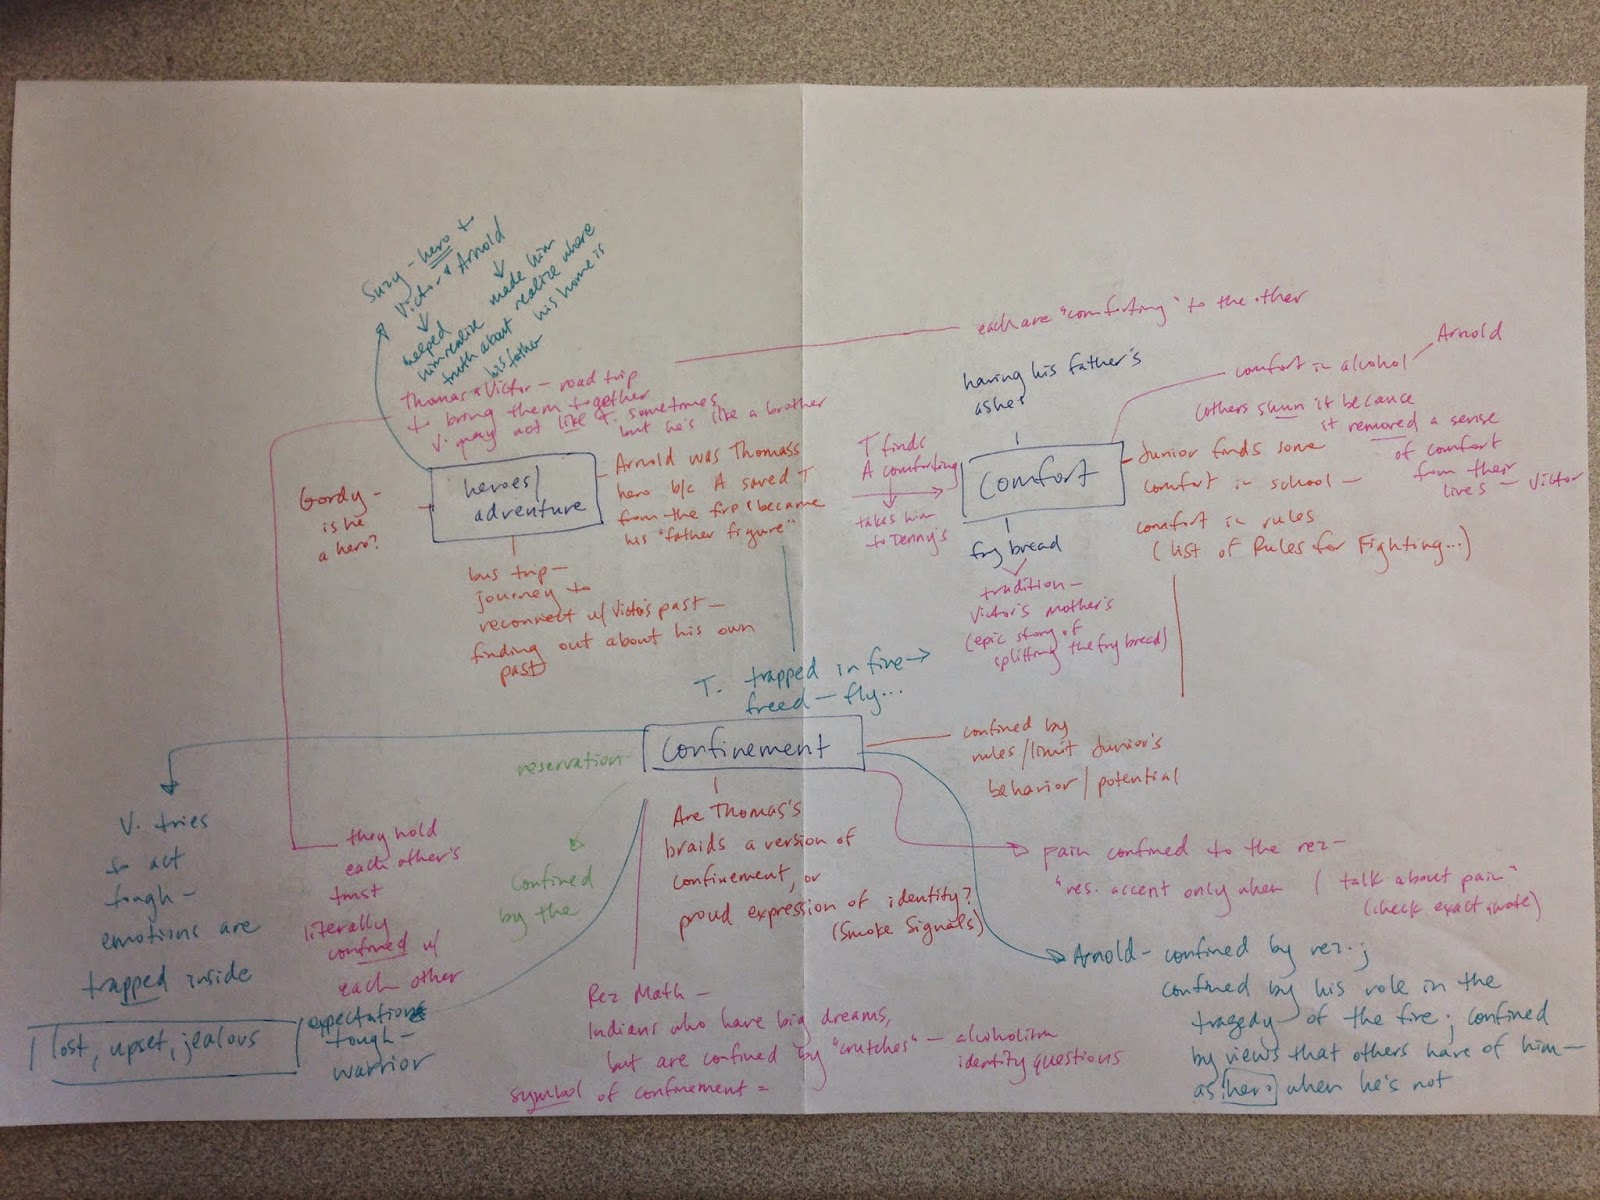 Suzy - hero to
Victor & Arnold
helped
him realize
truth about
his father
made him
realize where
his home is
Thomas & Victor - road trip
to bring them together
V. may not like T. sometimes
but he's like a brother
each are "comforting" to the other
heroes/
adventure
Gordy -
is he
a hero?
Arnold was Thomas's
hero b/c A saved T
from the fire & became
his "father figure"
bus trip -
journey to
reconnect w/ Victor's past -
finding out about his own
past
having his father's
ashes
Comfort
T finds
A comforting
takes him
to Denny's
fry bread
tradition -
Victor's mother's
(epic story of
splitting the fry bread)
comfort in alcohol
Arnold
(others shun it because
it removed a sense
of comfort
from their
lives - Victor
Junior finds some
comfort in school -
comfort in rules
(list of Rules for Fighting...)
T. trapped in fire →
freed - fly...
Confinement
reservation
confined
by the
confined by
rules/limit Junior's
behavior/potential
Are Thomas's
braids a version of
confinement, or
proud expression of identity?
(Smoke Signals)
pain confined to the rez -
"res. accent only when I talk about pain"
(check exact quote)
Arnold - confined by rez.;
confined by his role in the
tragedy of the fire; confined
by views that others have of him -
as hero when he's not
V. tries
to act
tough -
emotions are
trapped inside
lost, upset, jealous
they hold
each other's
trust
literally
confined w/
each other
expectations
tough -
warrior
Rez Math -
Indians who have big dreams,
but are confined by "crutches" - alcoholism
identity questions
symbol of confinement =